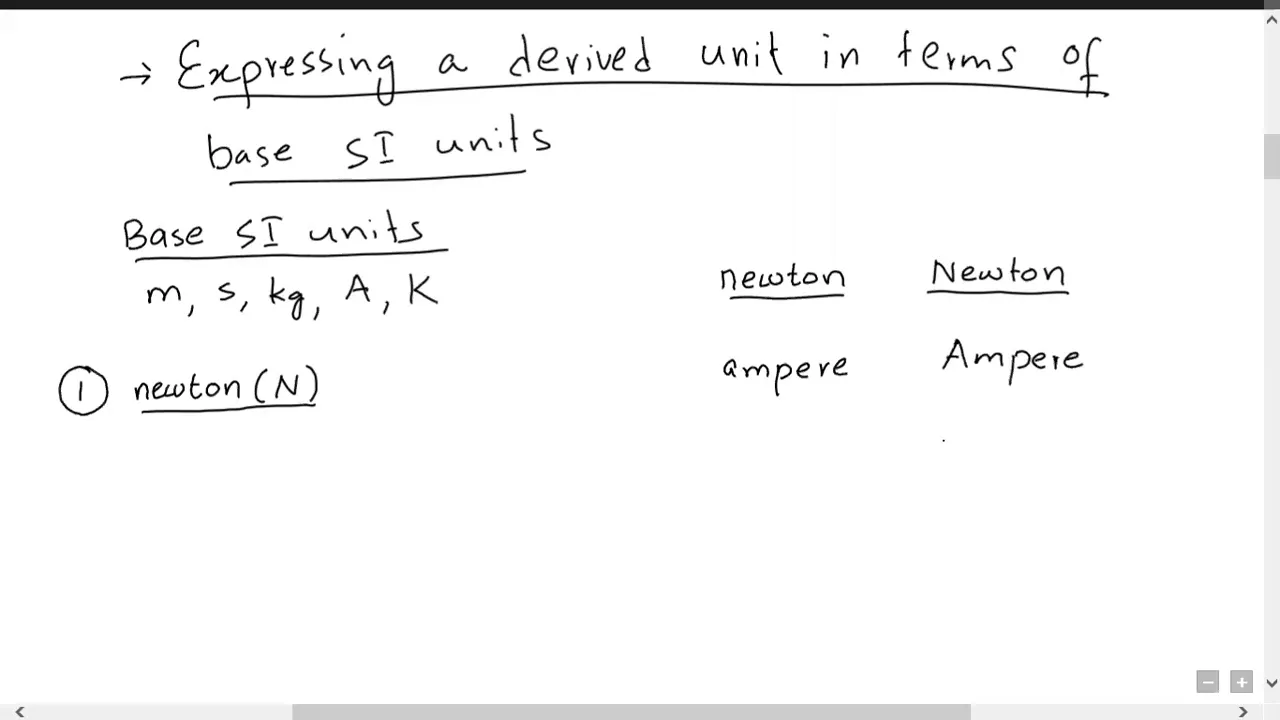 → Expressing a derived unit in terms of
base SI units
Base SI units
m, s, kg, A, K
newton Newton
ampere Ampere
① newton (N)